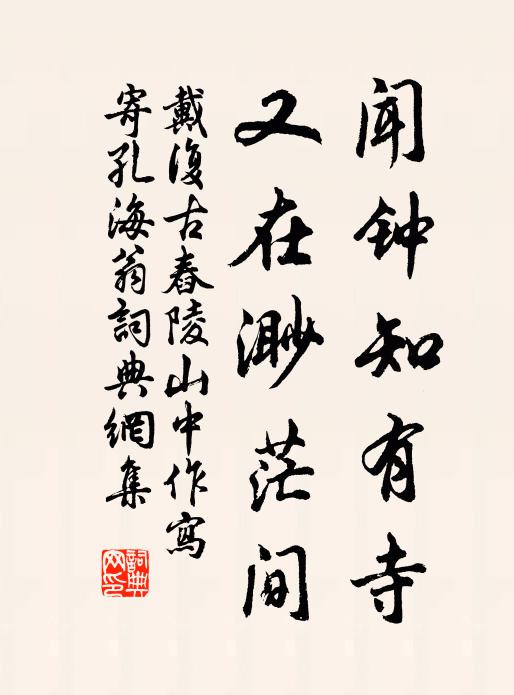 闻钟知有寺
又在渺茫间
戴復古舂陵山中作寫
寄孔海翁詞典網集
詞典网印